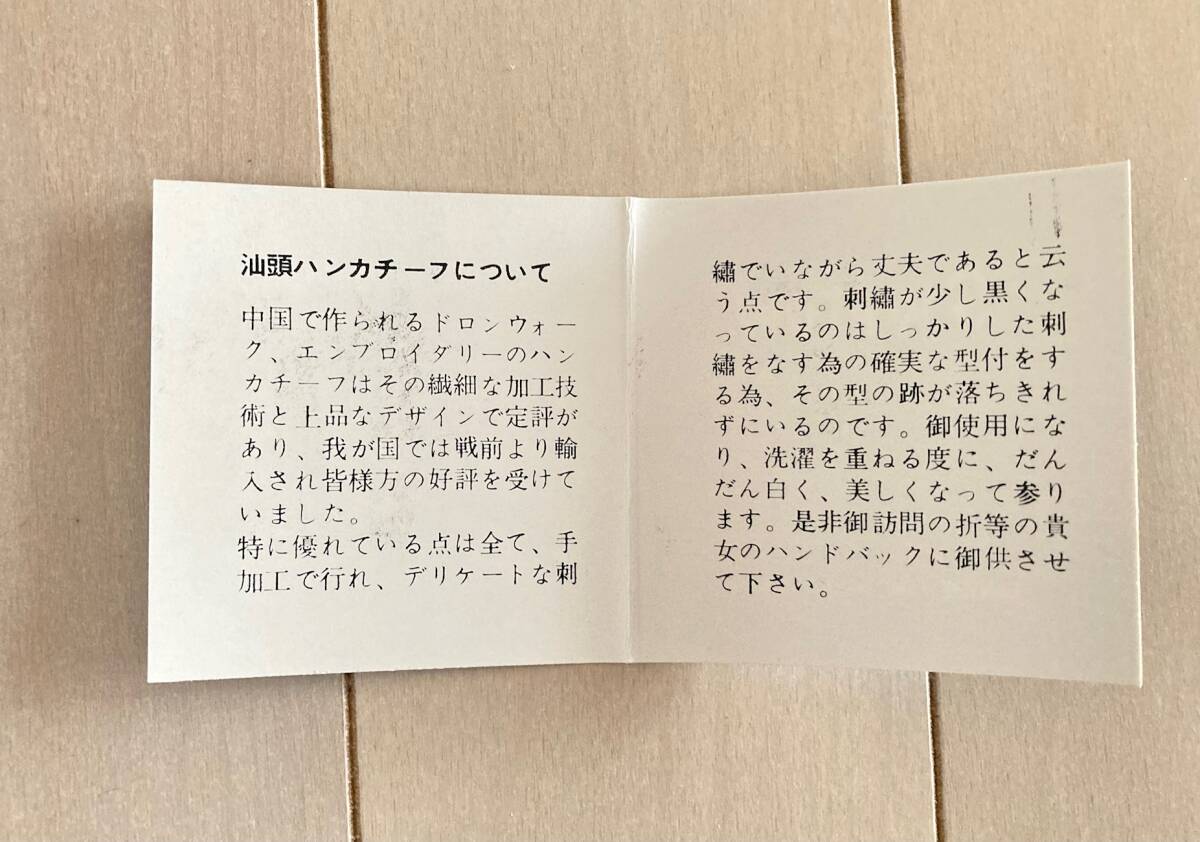 汕頭ハンカチーフについて
中国で作られるドロンウォー
ク、エンブロイダリーのハン
カチーフはその繊細な加工技
術と上品なデザインで定評が
あり、我が国では戦前より輸
入され皆様方の好評を受けて
いました。
特に優れている点は全て、手
加工で行れ、デリケートな刺
繡でいながら丈夫であると云
う点です。刺繡が少し黒くな
っているのはしっかりした刺
繡をなす為の確実な型付をす
る為、その型の跡が落ちきれ
ずにいるのです。御使用にな
り、洗濯を重ねる度に、だん
だん白く、美しくなって参り
ます。是非御訪問の折等の貴
女のハンドバックに御供させ
て下さい。